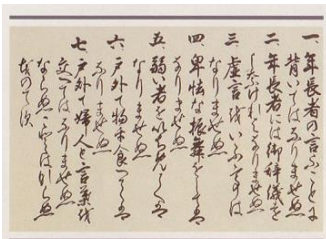 一、年長者の言ふことに
背いてはなりませぬ
二、年長者には御辞儀を
しなければなりませぬ
三、虚言をいふことは
なりませぬ
四、卑怯な振舞をしては
なりませぬ
五、弱い者をいぢめては
なりませぬ
六、戸外で物を食べては
なりませぬ
七、戸外で婦人と言葉を
交へてはなりませぬ
ならぬことはならぬ
ものです